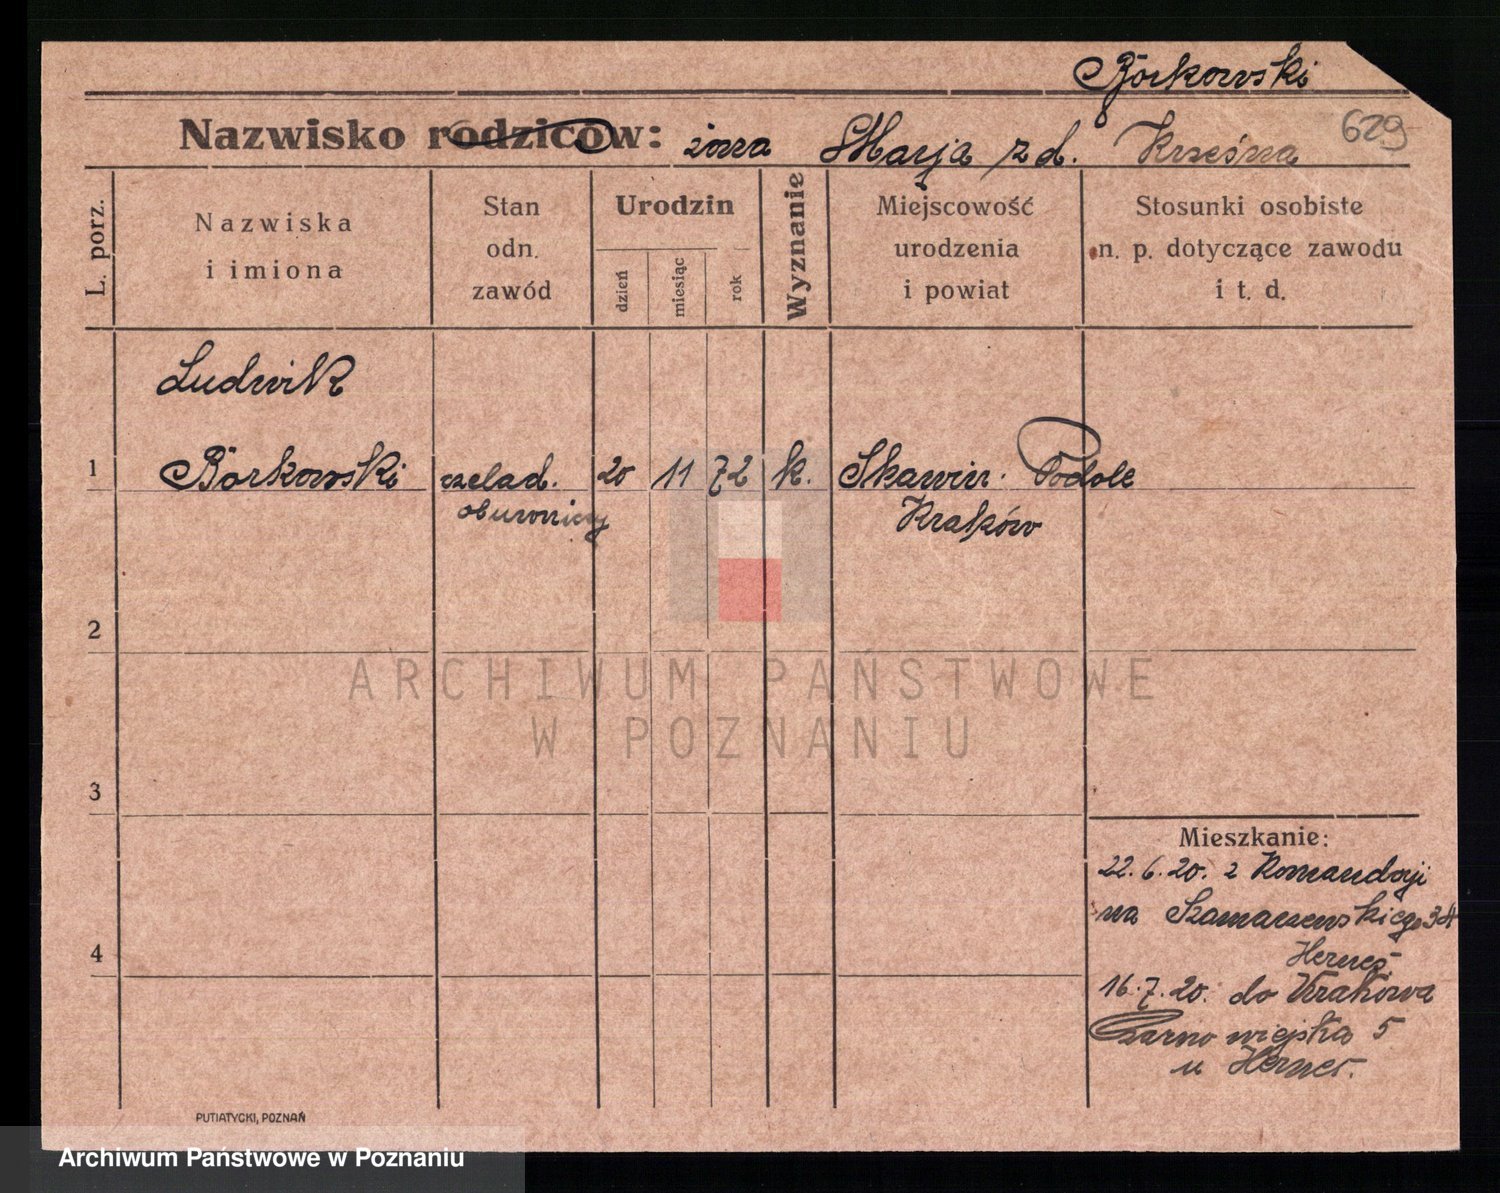 Borkowski
Nazwisko rodziców: żona Marja z d.
629
L. porz.
Nazwiska
i imiona
Stan
odn.
zawód
Urodzin
dzień
miesiąc
rok
Wyznanie
Miejscowość
urodzenia
i powiat
Stosunki osobiste
n. p. dotyczące zawodu
i t. d.
Ludwik
1 Borkowski czelad. 20 11 72 k. Skawin. Podole
Kraków
2
3
4
Mieszkanie:
22.6.20. z Komandorji
na Szamarzewskiego 34
16.7.20. do Krakowa
Czarnowiejska 5
u
PUTIATYCKI, POZNAŃ
ARCHIWUM PAŃSTWOWE
W POZNANIU
Archiwum Państwowe w Poznaniu